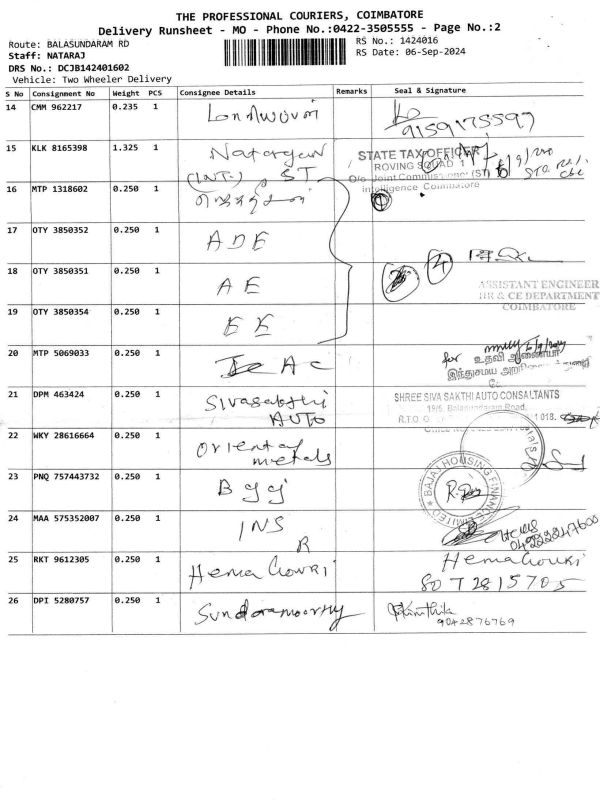 THE PROFESSIONAL COURIERS, COIMBATORE
Delivery Runsheet - MO - Phone No.:0422-3505555 - Page No.:2
Route: BALASUNDARAM RD
RS No.: 1424016
Staff: NATARAJ
RS Date: 06-Sep-2024
DRS No.: DCJB142401602
Vehicle: Two Wheeler Delivery
S No Consignment No Weight PCS Consignee Details Remarks Seal & Signature
14 CMM 962217 0.235 1
9159175597
15 KLK 8165398 1.325 1 Natarajan
(INT.), ST
STATE TAX OFFICER
ROVING SQUAD
O/o Joint Commissioner (ST)
Intelligence Coimbatore
16 MTP 1318602 0.250 1
17 OTY 3850352 0.250 1 ADE
18 OTY 3850351 0.250 1 AE
ASSISTANT ENGINEER
HR & CE DEPARTMENT
COIMBATORE
19 OTY 3850354 0.250 1 EE
20 MTP 5069033 0.250 1 AC
for உதவி ஆணையர்
21 DPM 463424 0.250 1 Sivasakthi
AUTO
SHREE SIVA SAKTHI AUTO CONSALTANTS
19/5, Balasundaram Road,
R.T.O 018.
22 WKY 28616664 0.250 1 Oriental
metals
23 PNQ 757443732 0.250 1
BAJAJ HOUSING FINANCE LIMITED
24 MAA 575352007 0.250 1 INS
R
25 RKT 9612305 0.250 1 Hema Gowri
Hema Gowri
8072815705
26 DPI 5280757 0.250 1 Sundaramoorthy
9042876769